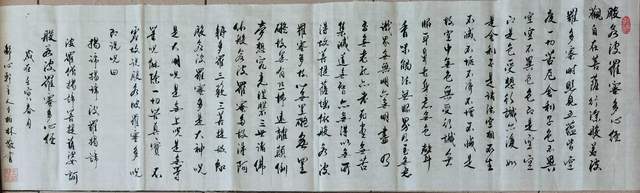 般若波羅蜜多心經
觀自在菩薩行深般若波
羅多蜜時照見五蘊皆空
度一切苦厄舍利子色不異
空空不異色色即是空空
即是色受想行識亦復如
是舍利子是諸法空相不生
不滅不垢不淨不增不減是
故空中無色無受想行識無
眼耳鼻舌身意無色聲
香味觸法無眼界乃至無意
識界無無明亦無無明盡乃
至無老死亦無老死盡無苦
集滅道無智亦無得以無所
得故菩提薩埵依般若波
羅蜜多故心無罣礙無罣
礙故無有恐怖遠離顛倒
夢想究竟涅槃三世諸佛
依般若波羅蜜多故得阿
耨多羅三藐三菩提故知
般若波羅蜜多是大神咒
是大明咒是無上咒是無等
等咒能除一切苦真實不
虛故說般若波羅蜜多咒
即說咒曰
揭諦揭諦波羅揭諦
波羅僧揭諦菩提薩婆訶
般若波羅蜜多心經